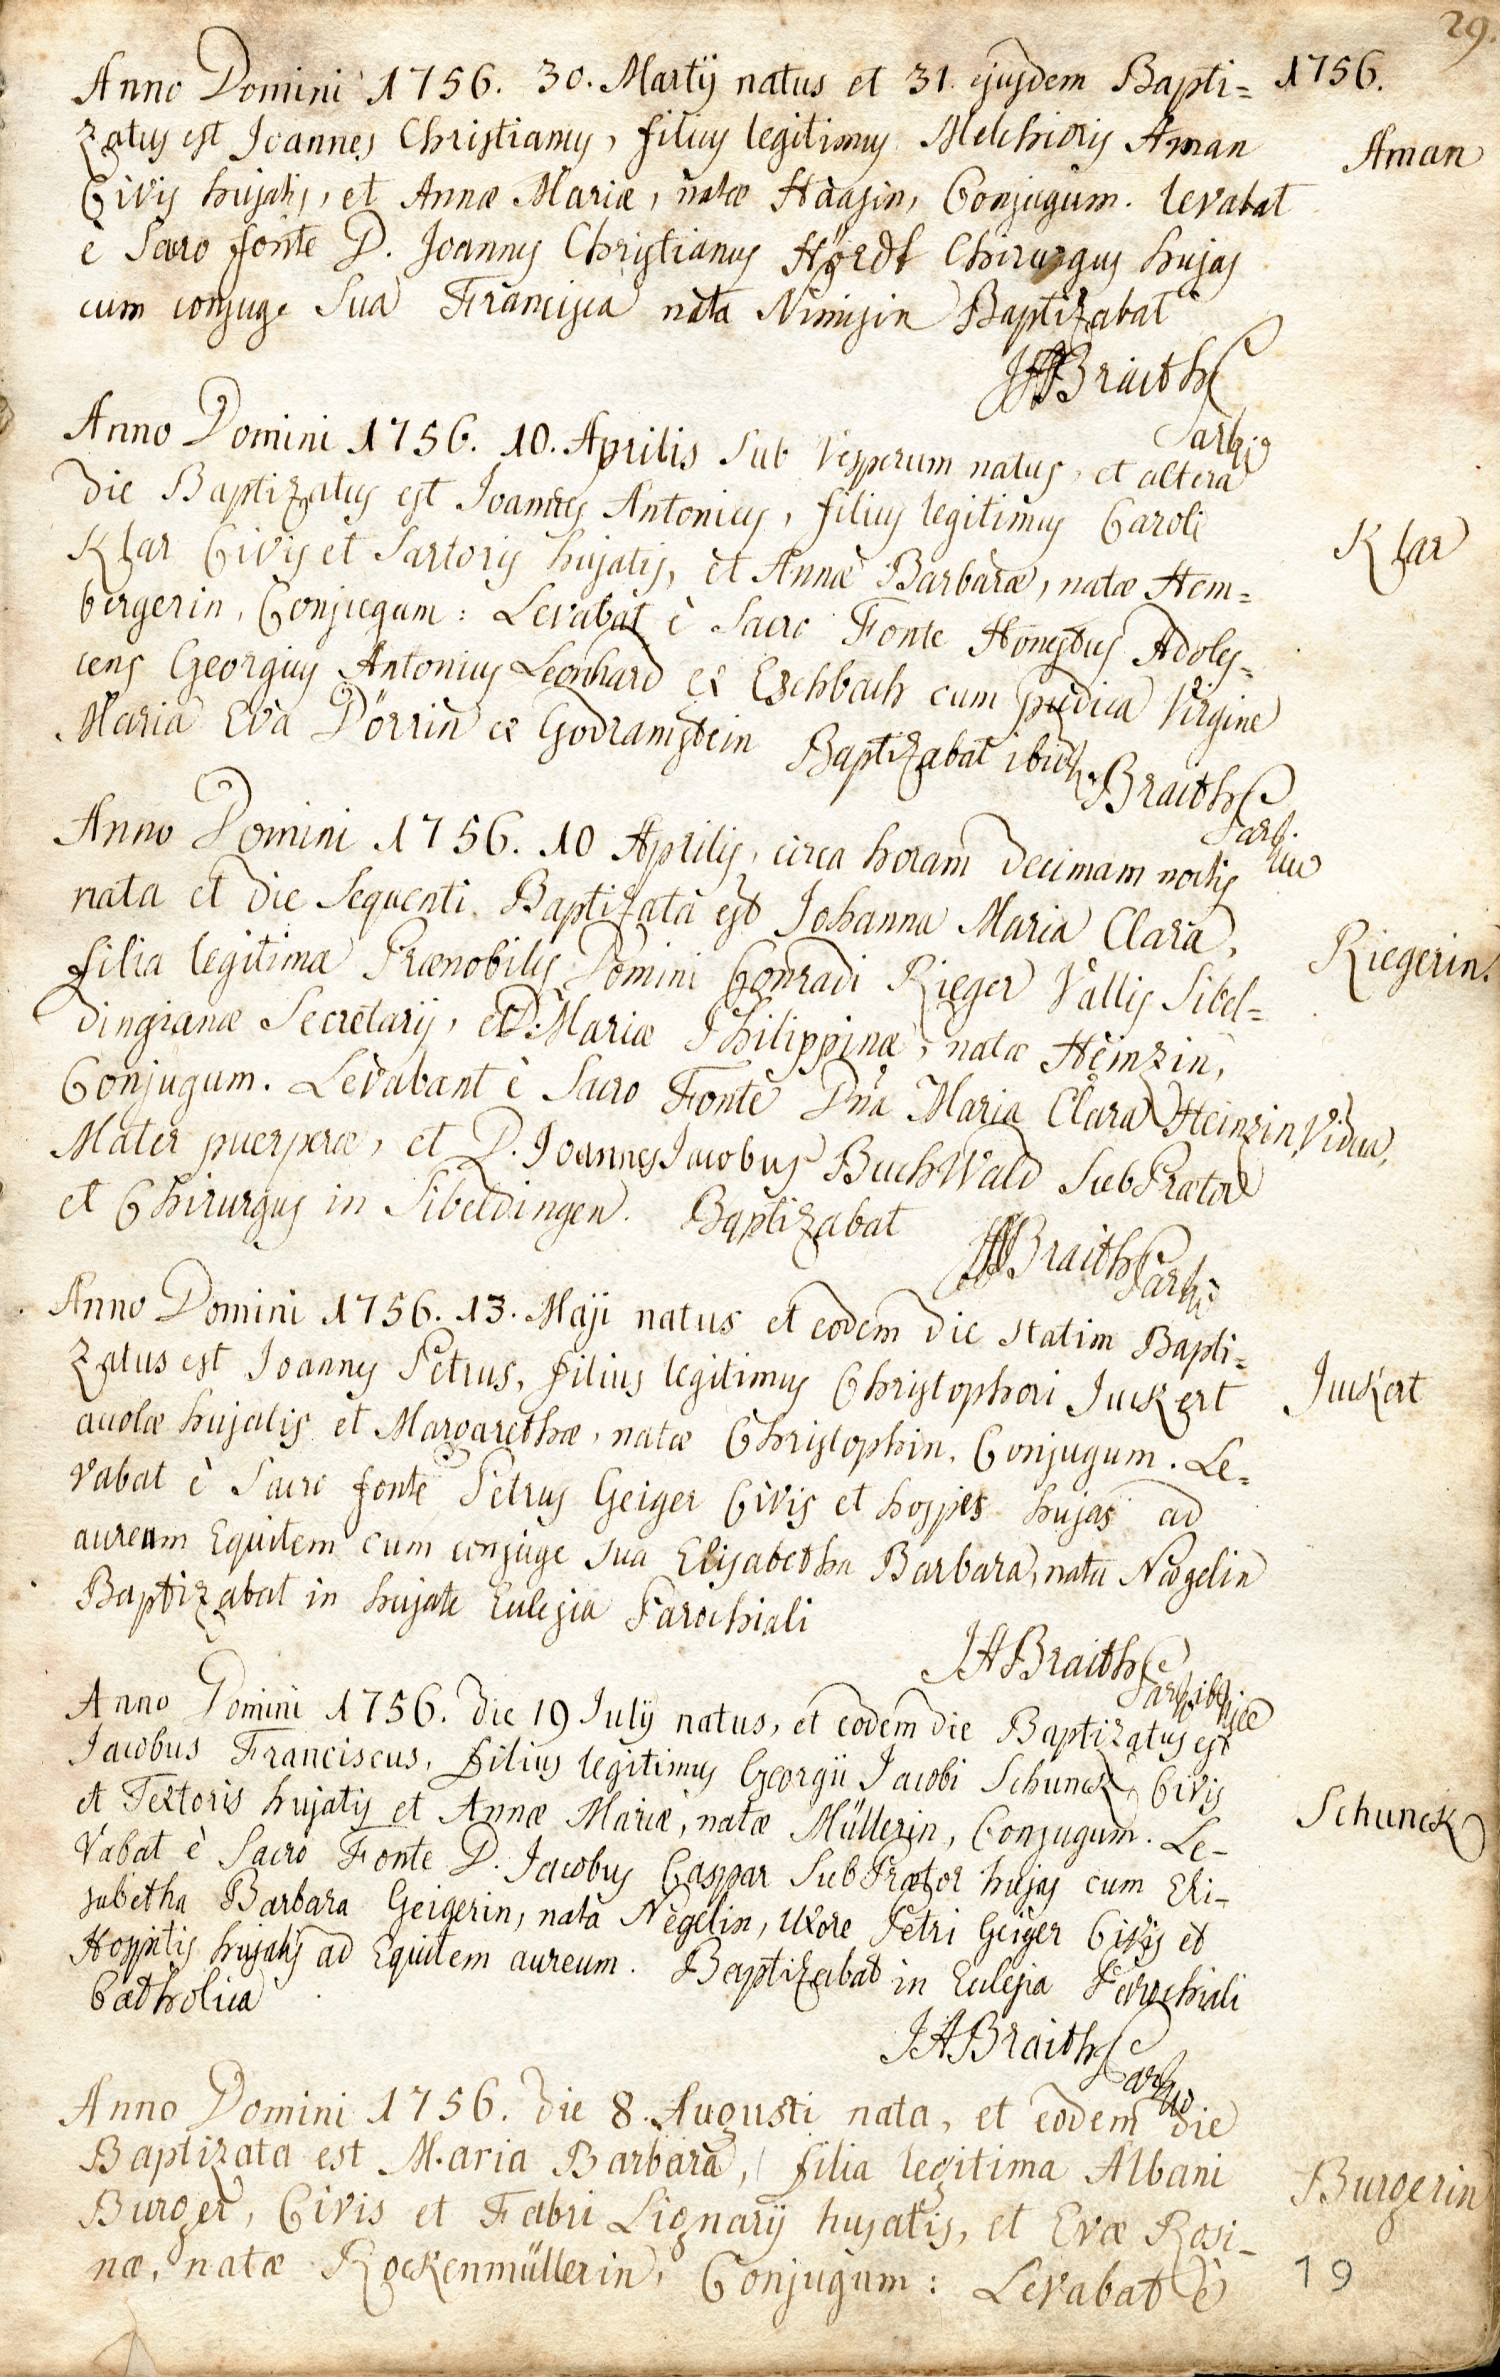 29.
Anno Domini 1756. 30. Martij natus et 31. ejusdem Bapti= 1756.
zatus est Joannes Christianus, filius legitimus Melchioris Aman Aman
Civis hujatis, et Annæ Mariæ, natæ Haasin, Conjugum. Levabat
è Sacro fonte D. Joannes Christianus Hördt Chirurgus hujas
cum conjuge Sua Francisca nata Nimisin Baptizabat
JABraith
Anno Domini 1756. 10. Aprilis Sub Vesperum natus, et altera
die Baptizatus est Joannes Antonius, filius legitimus Caroli
Klar Civis et Sartoris hujatis, et Annæ Barbaræ, natæ Hem= Klar
bergerin, Conjugum: Levabat è Sacro Fonte Honestus Adoles=
cens Georgius Antonius Leonhard ex Eschbach cum pudica Virgine
Maria Eva Dörrin ex Godramstein Baptizabat ibid.
Braith
Anno Domini 1756. 10 Aprilis, circa horam decimam noctis
nata et die Sequenti Baptizata est Johanna Maria Clara,
filia legitima Prænobilis Domini Conradi Rieger Vallis Sibel= Riegerin.
dingianæ Secretarij, et D. Mariæ Philippinæ, natæ Heinzin,
Conjugum. Levabant è Sacro Fonte Dña Maria Clara Heinzin, Vidua,
Mater puerperæ, et D. Joannes Jacobus BuchWald SubPrætor
et Chirurgus in Sibeldingen. Baptizabat
JABraith
Anno Domini 1756. 13. Maji natus et eodem die statim Bapti=
zatus est Joannes Petrus, filius legitimus Christophori Juckert Juckert
acolæ hujatis et Margarethæ, natæ Christophin, Conjugum. Le=
vabat è Sacro fonte Petrus Geiger Civis et hospes hujas ad
aureum Equitem cum conjuge sua Elisabetha Barbara, nata Nægelin
Baptizabat in hujate Ecclesia Parochiali
JABraith
Anno Domini 1756. die 19 Julij natus, et eodem die Baptizatus est
Jacobus Franciscus, filius legitimus Georgii Jacobi Schunck, Civis
et Textoris hujatis et Annæ Mariæ, natæ Müllerin, Conjugum. Le- Schunck
vabat è Sacro Fonte D. Jacobus Caspar SubPrætor hujas cum Eli-
sabetha Barbara Geigerin, nata Negelin, Uxore Petri Geiger Civis et
Hospitis hujatis ad Equitem aureum. Baptizabat in Ecclesia Parochiali
Catholica
JABraith
Anno Domini 1756. die 8. Augusti nata, et eodem die
Baptizata est Maria Barbara, filia legitima Albani
Burger, Civis et Fabri Lignarij hujatis, et Evæ Rosi- Burgerin
næ, natæ Rockenmüllerin, Conjugum: Levabat è
19